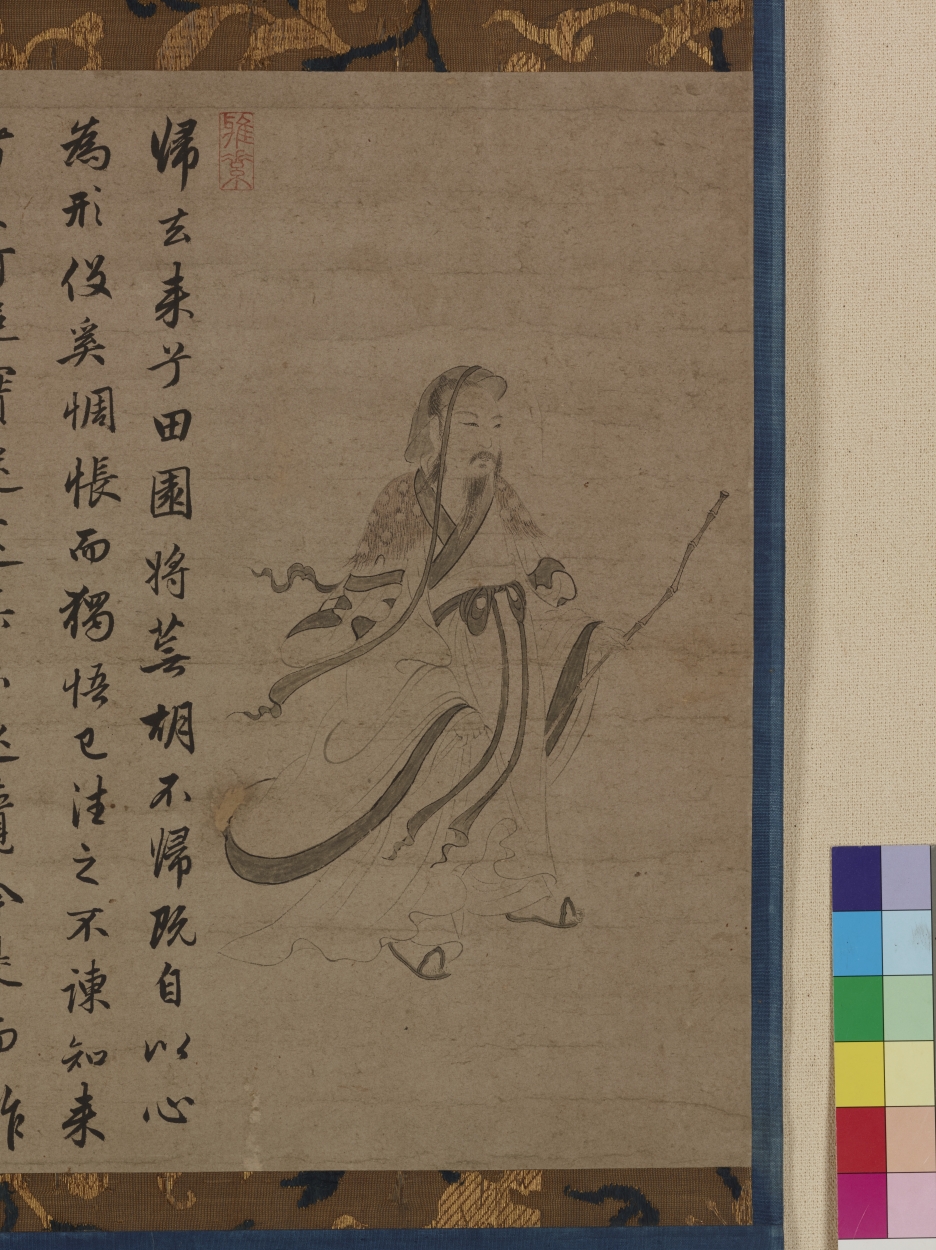 歸去来兮田園將蕪胡不歸既自以心
為形役奚惆悵而獨悟已往之不諫知来